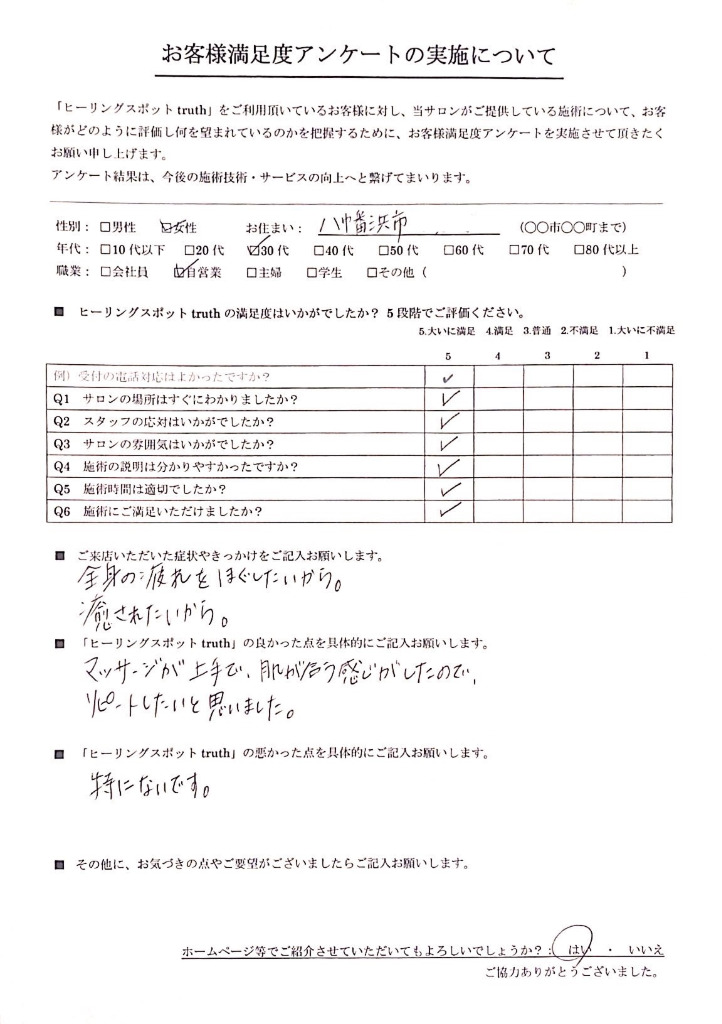 お客様満足度アンケートの実施について
「ヒーリングスポット truth」をご利用頂いているお客様に対し、当サロンがご提供している施術について、お客
様がどのように評価し何を望まれているのかを把握するために、お客様満足度アンケートを実施させて頂きたく
お願い申し上げます。
アンケート結果は、今後の施術技術・サービスの向上へと繋げてまいります。
性別：□男性 ☑女性 お住まい：八幡浜市 （〇〇市〇〇町まで）
年代：□10代以下 □20代 ☑30代 □40代 □50代 □60代 □70代 □80代以上
職業：□会社員 ☑自営業 □主婦 □学生 □その他（ ）
■ ヒーリングスポット truth の満足度はいかがでしたか？ 5段階でご評価ください。
5.大いに満足 4.満足 3.普通 2.不満足 1.大いに不満足
5 4 3 2 1
例）受付の電話対応はよかったですか？ ✓
Q1 サロンの場所はすぐにわかりましたか？ ✓
Q2 スタッフの応対はいかがでしたか？ ✓
Q3 サロンの雰囲気はいかがでしたか？ ✓
Q4 施術の説明は分かりやすかったですか？ ✓
Q5 施術時間は適切でしたか？ ✓
Q6 施術にご満足いただけましたか？ ✓
■ ご来店いただいた症状やきっかけをご記入お願いします。
全身の疲れをほぐしたいから。
癒されたいから。
■ 「ヒーリングスポット truth」の良かった点を具体的にご記入お願いします。
マッサージが上手で、肌が合う感じがしたので、
リピートしたいと思いました。
■ 「ヒーリングスポット truth」の悪かった点を具体的にご記入お願いします。
特にないです。
■ その他に、お気づきの点やご要望がございましたらご記入お願いします。
ホームページ等でご紹介させていただいてもよろしいでしょうか？： はい ・ いいえ
ご協力ありがとうございました。